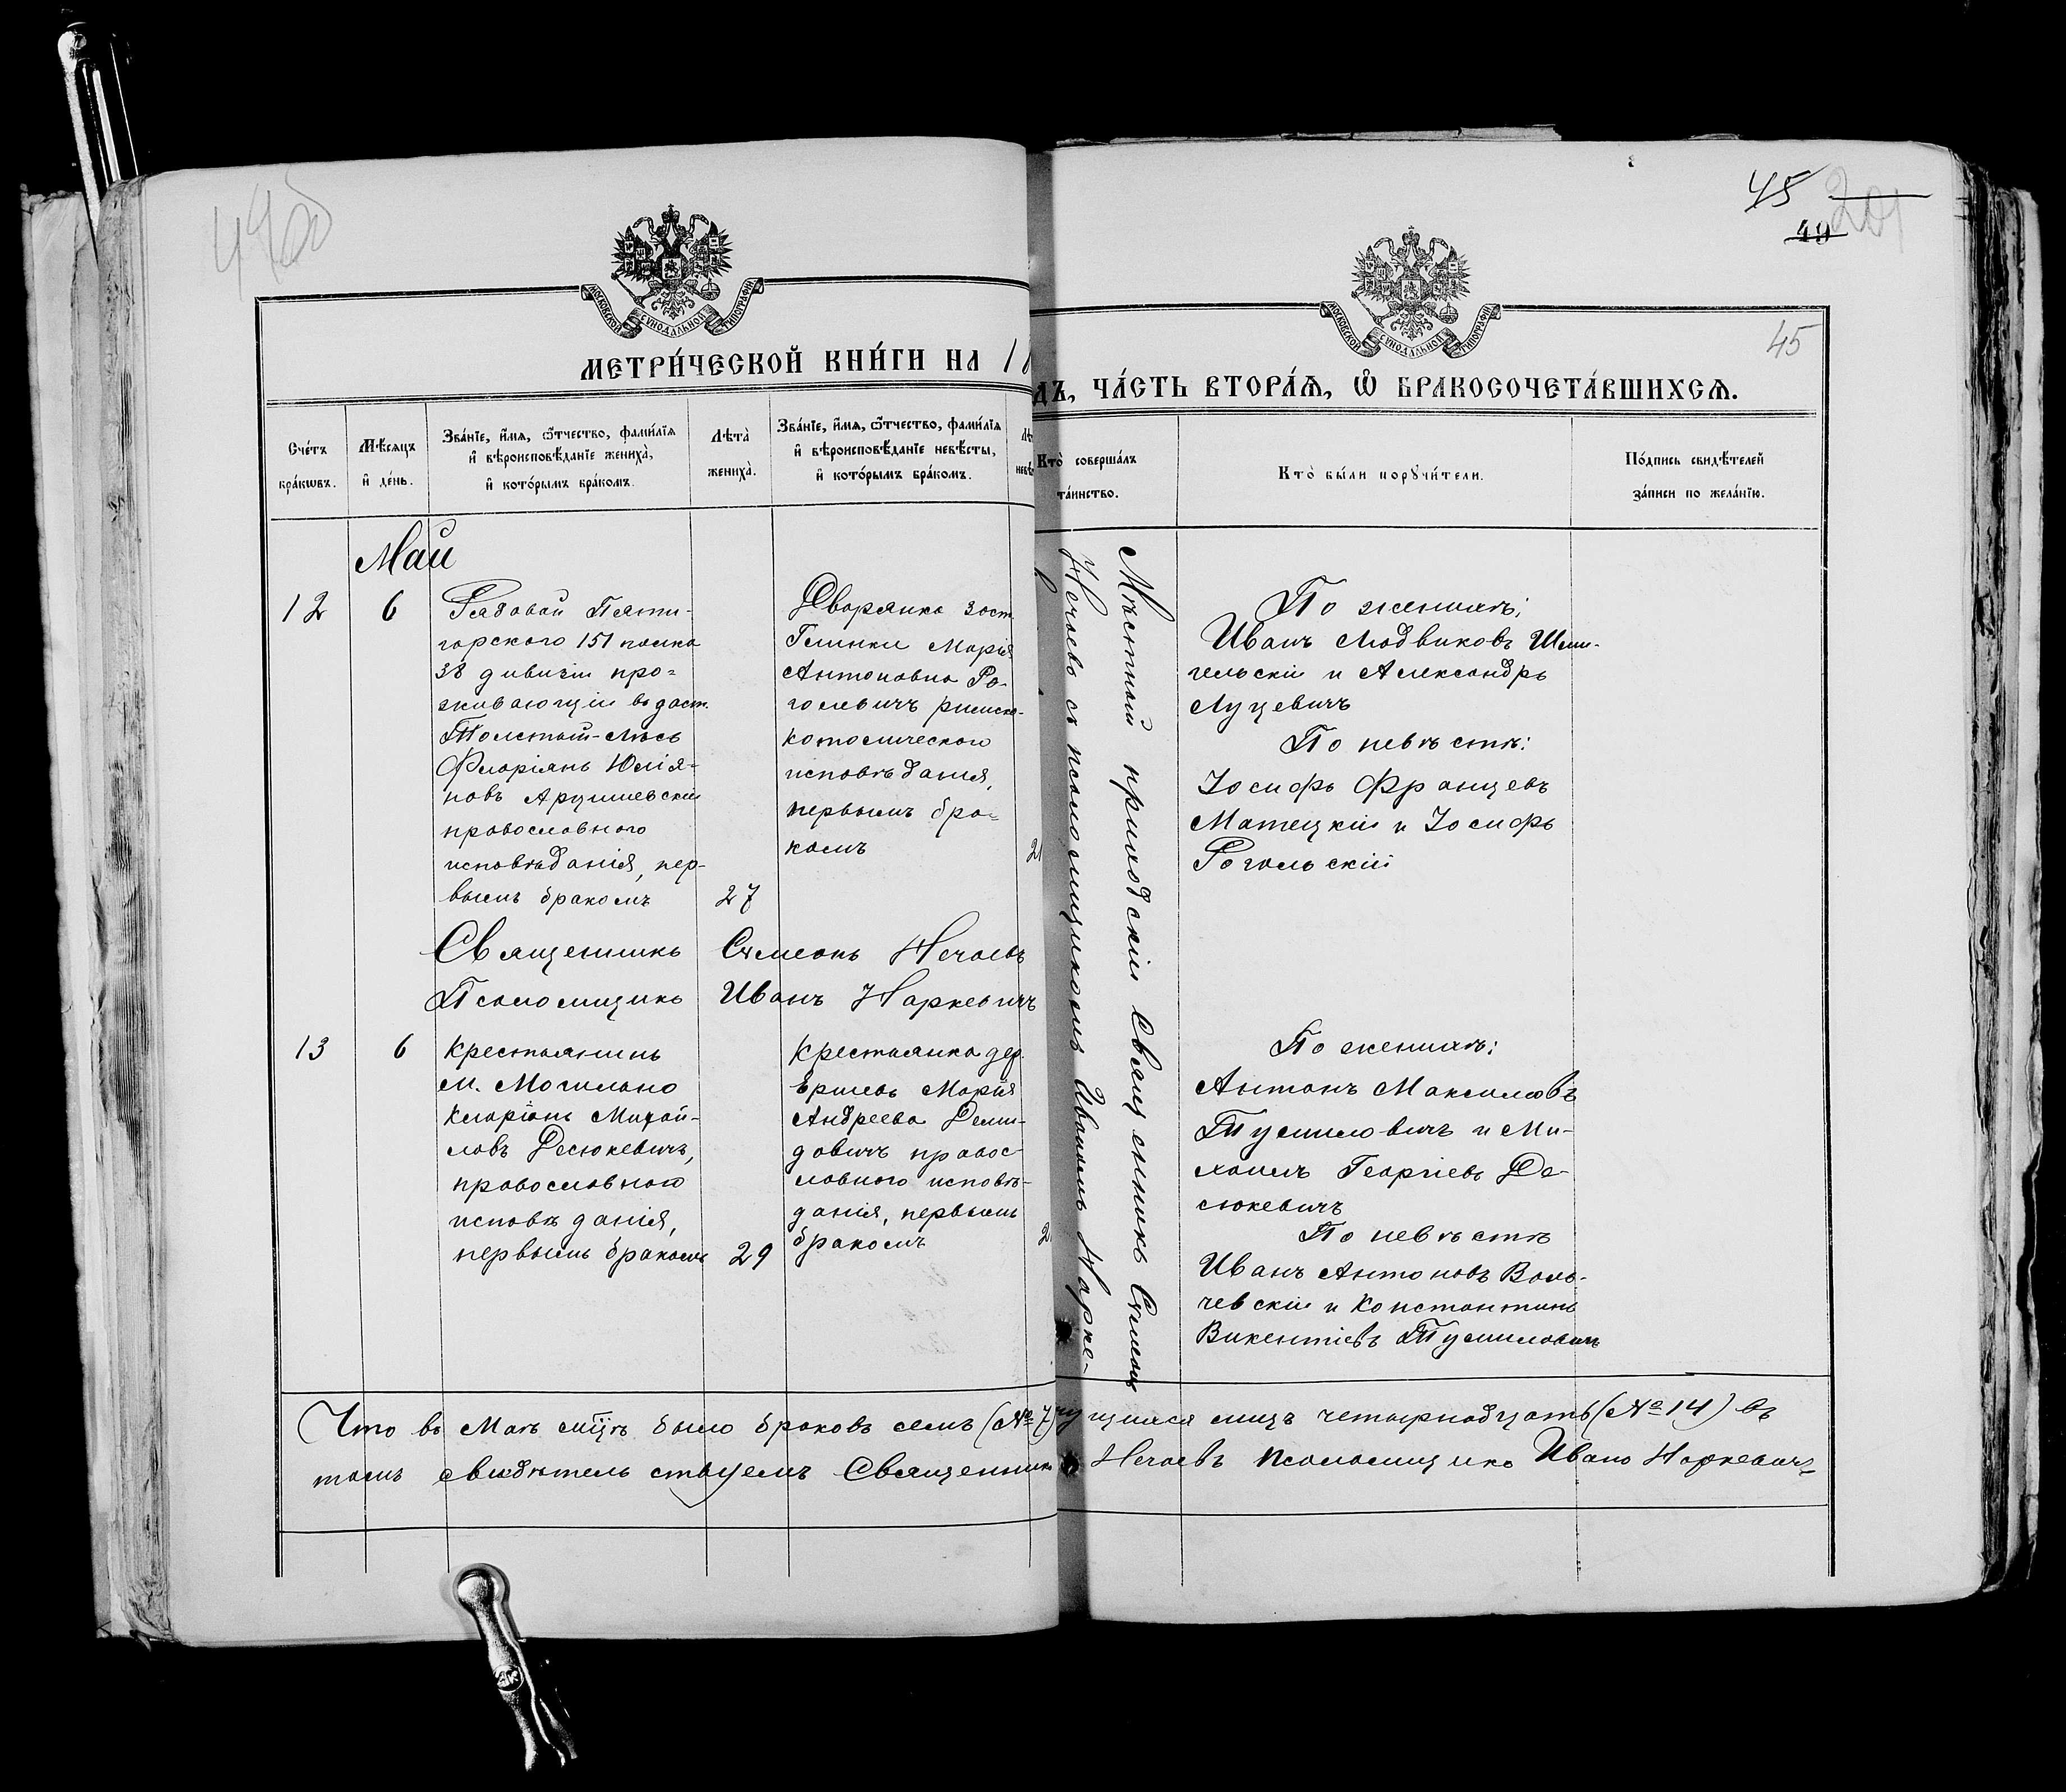 45
49
45
МОСКОВСКОЙ СѴНОДАЛЬНОЙ ТИПОГРАФІИ
МОСКОВСКОЙ СѴНОДАЛЬНОЙ ТИПОГРАФІИ
МЕТРИ́ЧЕСКОЙ КНИ́ГИ НА 18
ДЪ, ЧА́СТЬ ВТОРА́Ѧ, Ѡ БРАКОСОЧЕТА́ВШИХСѦ.
Сче́тъ
бра́кѡвъ.
Мѣ́сяцъ
и҆ де́нь.
Зва́нїе, и҆́мѧ, ѻ҆́тчество, фами́лїѧ
и҆ вѣроисповѣ́данїе жениха̀,
и҆ кото́рымъ бра́комъ.
Лѣта̀
жениха̀.
Зва́нїе, и҆́мѧ, ѻ҆́тчество, фами́лїѧ
и҆ вѣроисповѣ́данїе невѣ́сты,
и҆ кото́рымъ бра́комъ.
Кто̀ соверша́лъ
та́инство.
Кто̀ бы́ли порꙋчи́тели.
По́дпись свидѣ́телей
за́писи по жела́нїю.
Май
12
6
Рядовой Пяти-
горского 151 полка
38 дивизіи про-
живающій въ заст.
Толстый-Лѣсъ
Флоріянъ Юлія-
новъ Арцишевскій
православного
исповѣданія, пер-
вымъ бракомъ
27
Дворянка заст.
Глинки Марія
Антоновна Ро-
голевичъ римско-
католического
исповѣданія,
первымъ бра-
комъ
21
Священникъ Сѵмеонъ Нечаевъ
Псаломщикъ Иванъ Наркевичъ
Мѣстный приходскій Священникъ Сѵмеонъ
Нечаевъ съ псаломщикомъ Иваномъ Нарке-
По женихѣ:
Иванъ Людвиковъ Шем-
гельскій и Александръ
Луцевичъ
По невѣстѣ:
Іосифъ Францевъ
Матецкій и Іосифъ
Рогольскій
13
6
Крестьянинъ
м. Могильно
Иларіонъ Михай-
ловъ Десюкевичъ,
православного
исповѣданія,
первымъ бракомъ
29
Крестьянка дер.
Ершевъ Марія
Андреева Деми-
довичъ правос-
лавного исповѣ-
данія, первымъ
бракомъ
2
По женихѣ:
Антонъ Максимовъ
Тумиловичъ и Ми-
хаилъ Георгіевъ Де-
сюкевичъ
По невѣстѣ
Иванъ Антоновъ Воль-
чевскій и Константинъ
Викентіевъ Тумиловичъ
Что въ Маѣ м͠цѣ было браковъ семъ (№ 7) щихся лицъ четырнадцать (№ 14) въ
томъ свидѣтельствуемъ Священникъ Нечаевъ Псаломщикъ Иванъ Наркевичъ